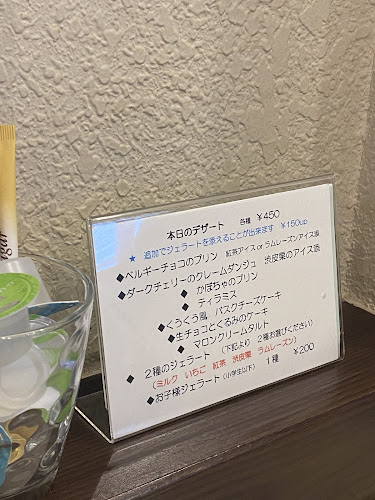 本日のデザート 各種 ¥450
★ 追加でジェラートを添えることが出来ます ¥150up
◆ベルギーチョコのプリン 紅茶アイス or ラムレーズンアイス添
◆ダークチェリーのクレームダンジュ 渋皮栗のアイス添
◆ かぼちゃのプリン
◆ ティラミス
◆くうくう風 バスクチーズケーキ
◆生チョコとくるみのケーキ
◆ マロンクリームタルト
◆ 2種のジェラート (下記より 2種お選びください)
(ミルク いちご 紅茶 渋皮栗 ラムレーズン)
◆お子様ジェラート(小学生以下) 1種 ¥200
gar